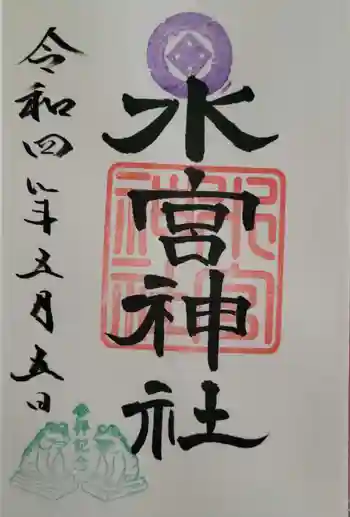 水宮神社
水宮神社
令和四年五月五日
参拝記念